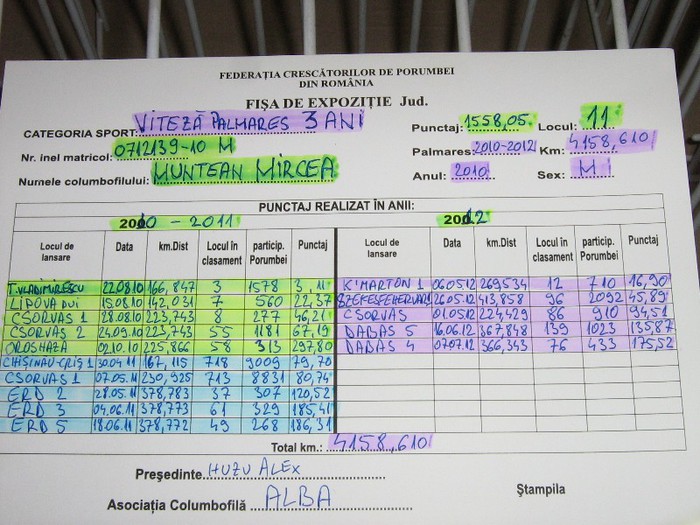 FEDERAȚIA CRESCĂTORILOR DE PORUMBEI
DIN ROMÂNIA
FIȘA DE EXPOZIȚIE Jud.
CATEGORIA SPORT: VITEZĂ PALMARES 3 ANI Punctaj: 1558,05. Locul: 11
Nr. inel matricol: 0712139-10 M Palmares: 2010-2012 Km: 4158,610
Numele columbofilului: MUNTEAN MIRCEA Anul: 2010 Sex: M
PUNCTAJ REALIZAT ÎN ANII:
2010 - 2011 2012
Locul de lansare Data km.Dist Locul în clasament particip. Porumbei Punctaj Locul de lansare Data km.Dist Locul în clasament particip. Porumbei Punctaj
T.VLADIMIRESCU 22.08.10 166,847 3 1578 3,11 K'MARTON 1 06.05.12 269,534 12 710 16,90
LIPOVA PUI 15.08.10 142,031 7 560 22,37 SZEKESFEHERVAR 1 26.05.12 413,858 96 2092 45,89
CSORVAS 1 28.08.10 223,743 8 277 46,21 CSORVAS 01.05.12 224,429 86 910 94,51
CSORVAȘ 2 24.09.10 223,743 55 1181 67,19 DABAS 5 16.06.12 367,848 139 1023 135,87
OROSHAZA 02.10.10 225,866 58 313 297,80 DABAS 4 07.07.12 366,343 76 433 175,52
CHIȘINAU-CRIȘ 1 30.04.11 167,115 718 9009 79,70
CSORVAS 1 07.05.11 230,925 713 8831 80,74
ERD 2 28.05.11 378,783 37 307 120,52
ERD 3 04.06.11 378,773 61 329 185,41
ERD 5 18.06.11 378,772 49 268 186,31
Total km.: 4158,610
Președinte HUZU ALEX
Asociația Columbofilă ALBA Ștampila